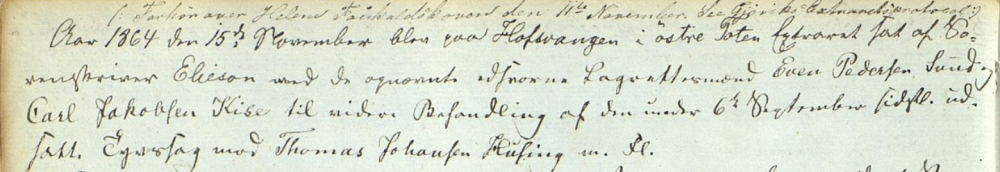 (: Forhør over Helene Taikaldsk ovad den 11te November. See Gjøviks Extraretsprotocol :)
Aar 1864 den 15de November blev paa Hofsvangen i østre Toten Extraret sat af So-
renskriver Elieson med de opnævnte edsvorne Lagrettesmænd Even Pedersen Sund og
Carl Jakobsen Kise til videre Behandling af den under 6te September sidstl. ud-
satte Tyvssag mod Thomas Johansen Husing m. Fl.